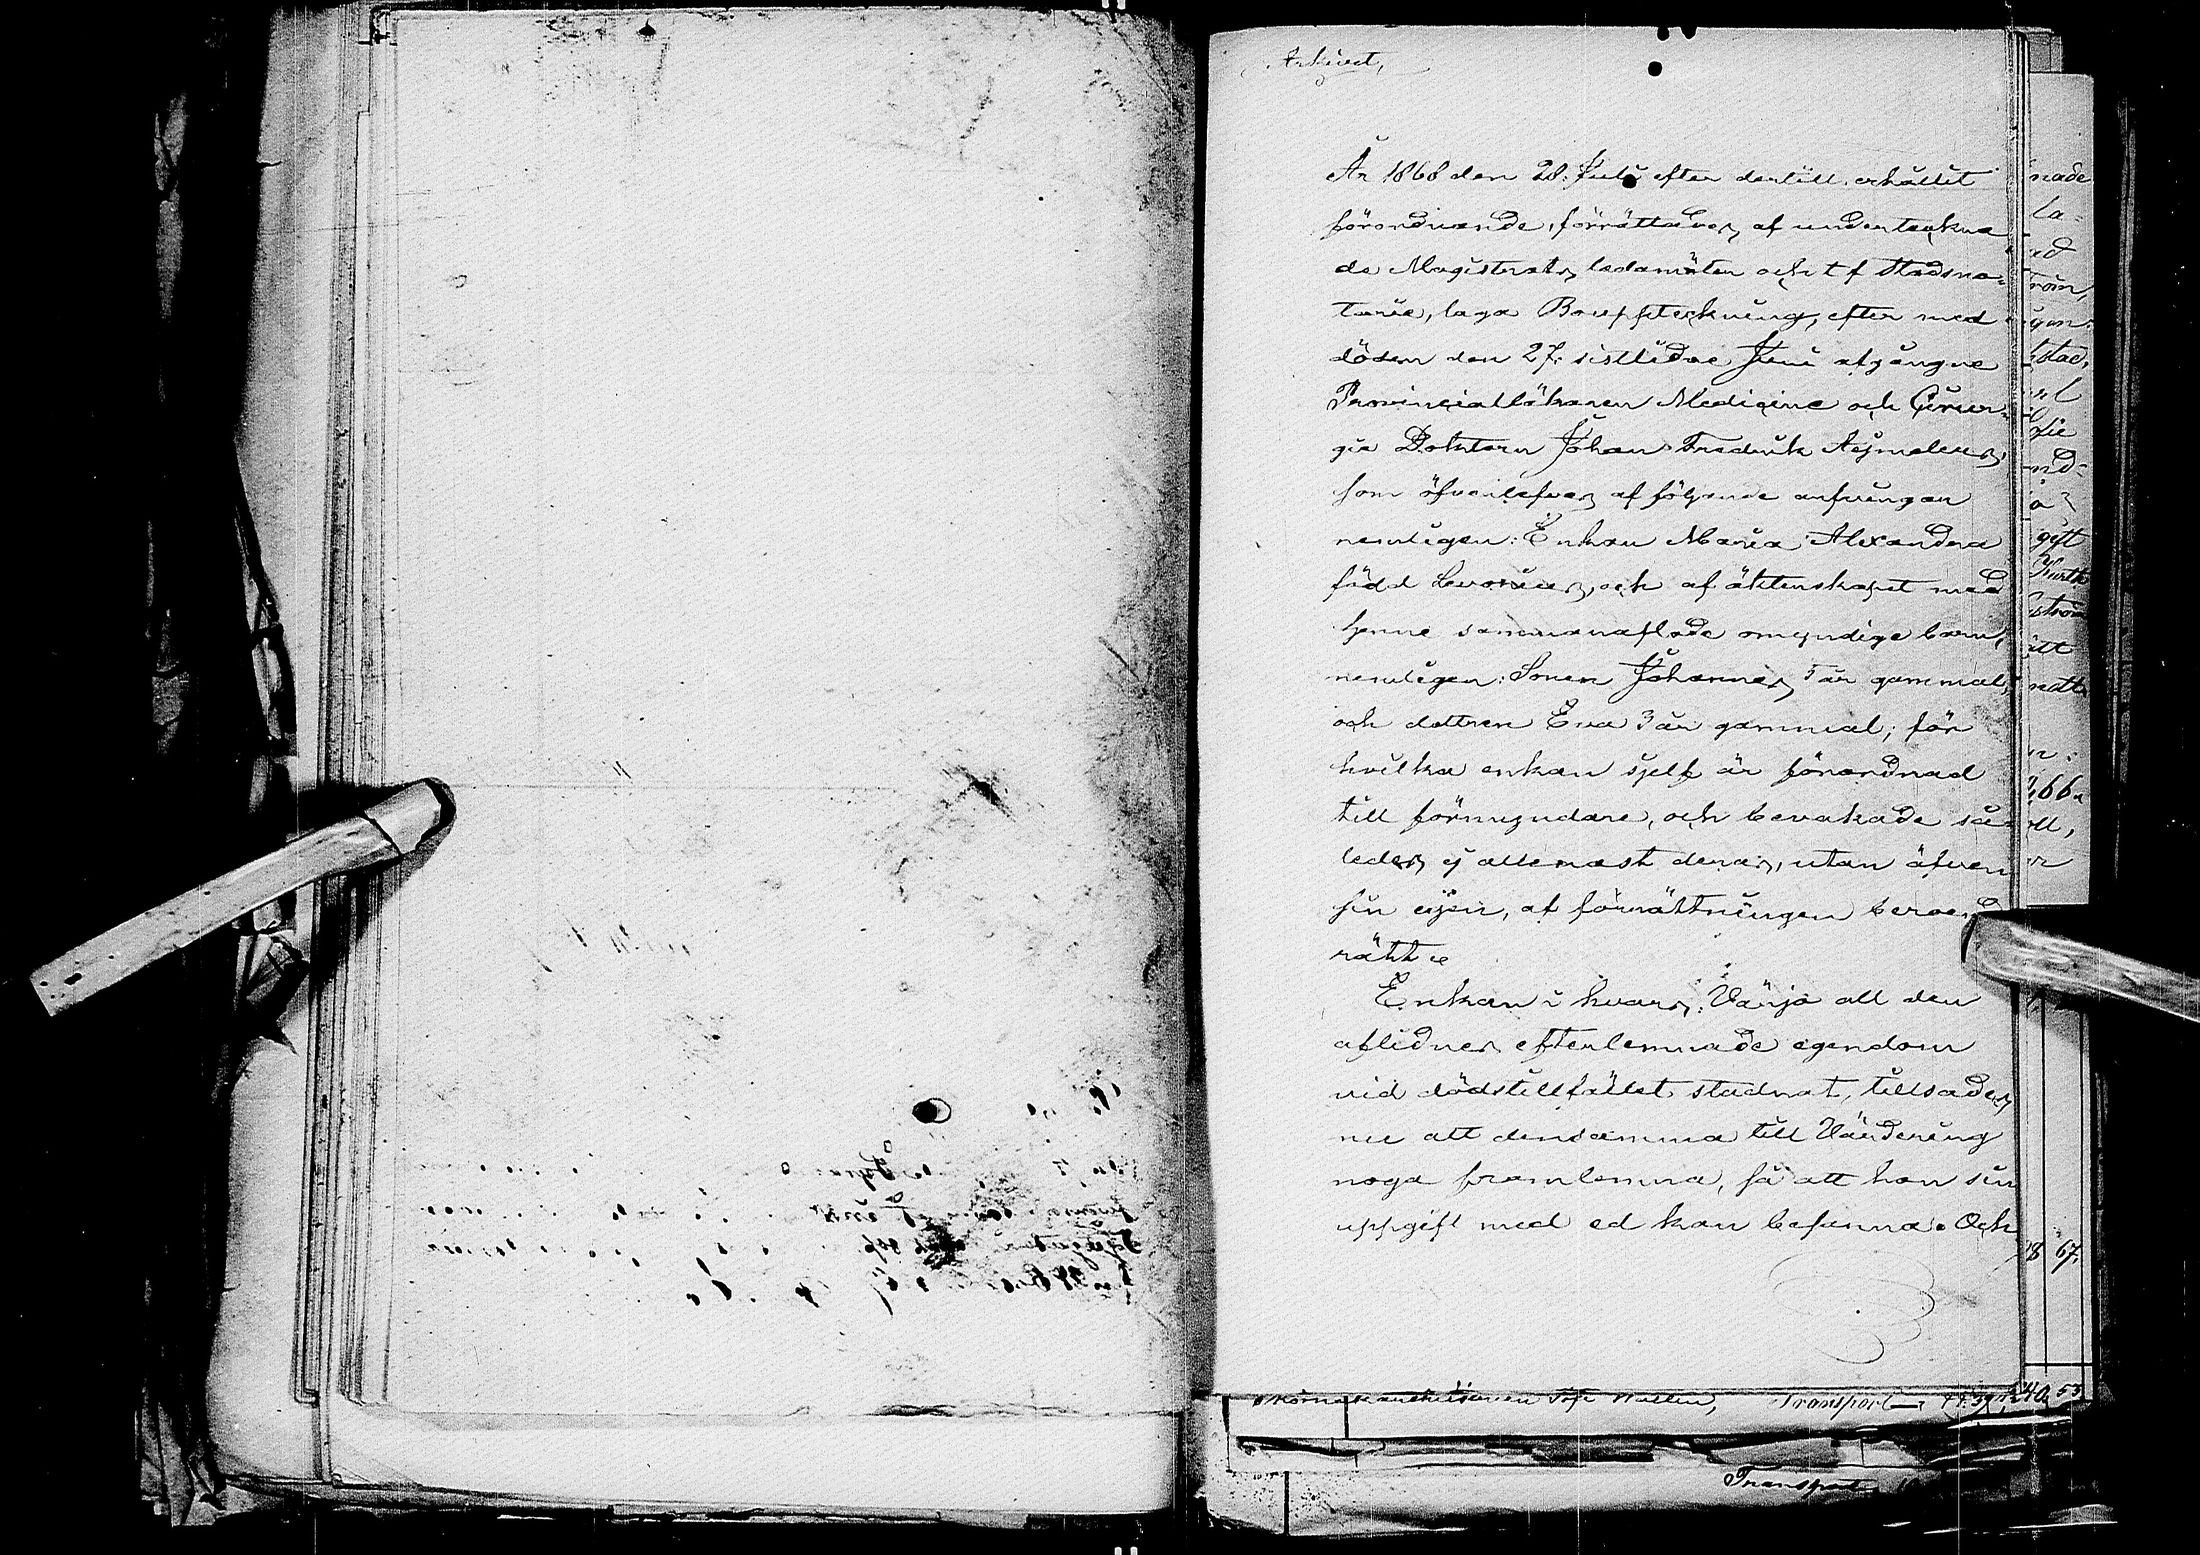 Arkivet,
År 1868 den 28. Juli efter dertill erhållit
förordnande, förrättades af underteckna
de Magistrats ledamöter och t f Stadsno-
tarie, laga Bouppteckning, efter med
döden den 27. sistlidne Juni afgångne
Provincialläkaren Medicine och Cirur-
gie Doktorn Johan Fredrik Aejmelæus,
som öfverlefves af följande arfvingar
nemligen: Enkan Maria Alexandra
född Levonius, och af äktenskapet med
henne sammanaflade omyndige barn,
nemligen: Sonen Johannes 5 år gammal,
och dottren Eva 3 år gammal; för
hvilka enkan sjelf är förordnad
till förmyndare, och bevakade så-
ledes ej allenast deras, utan äfven
sin egen, af förrättningen beroend
rätt.
Enkan i hvars Värjo all den
aflidnes efterlemnade egendom
vid dödstillfället stadnat, tillsades
nu att densamma till Värdering
noga framlemna, så att hon sin
uppgift med ed kan besanna. Och
nade
la-
ed
röm,
gen
stad,
nd-
gift
ström
ått
66
28 67.
Wallin, Transport 240 53
Transport